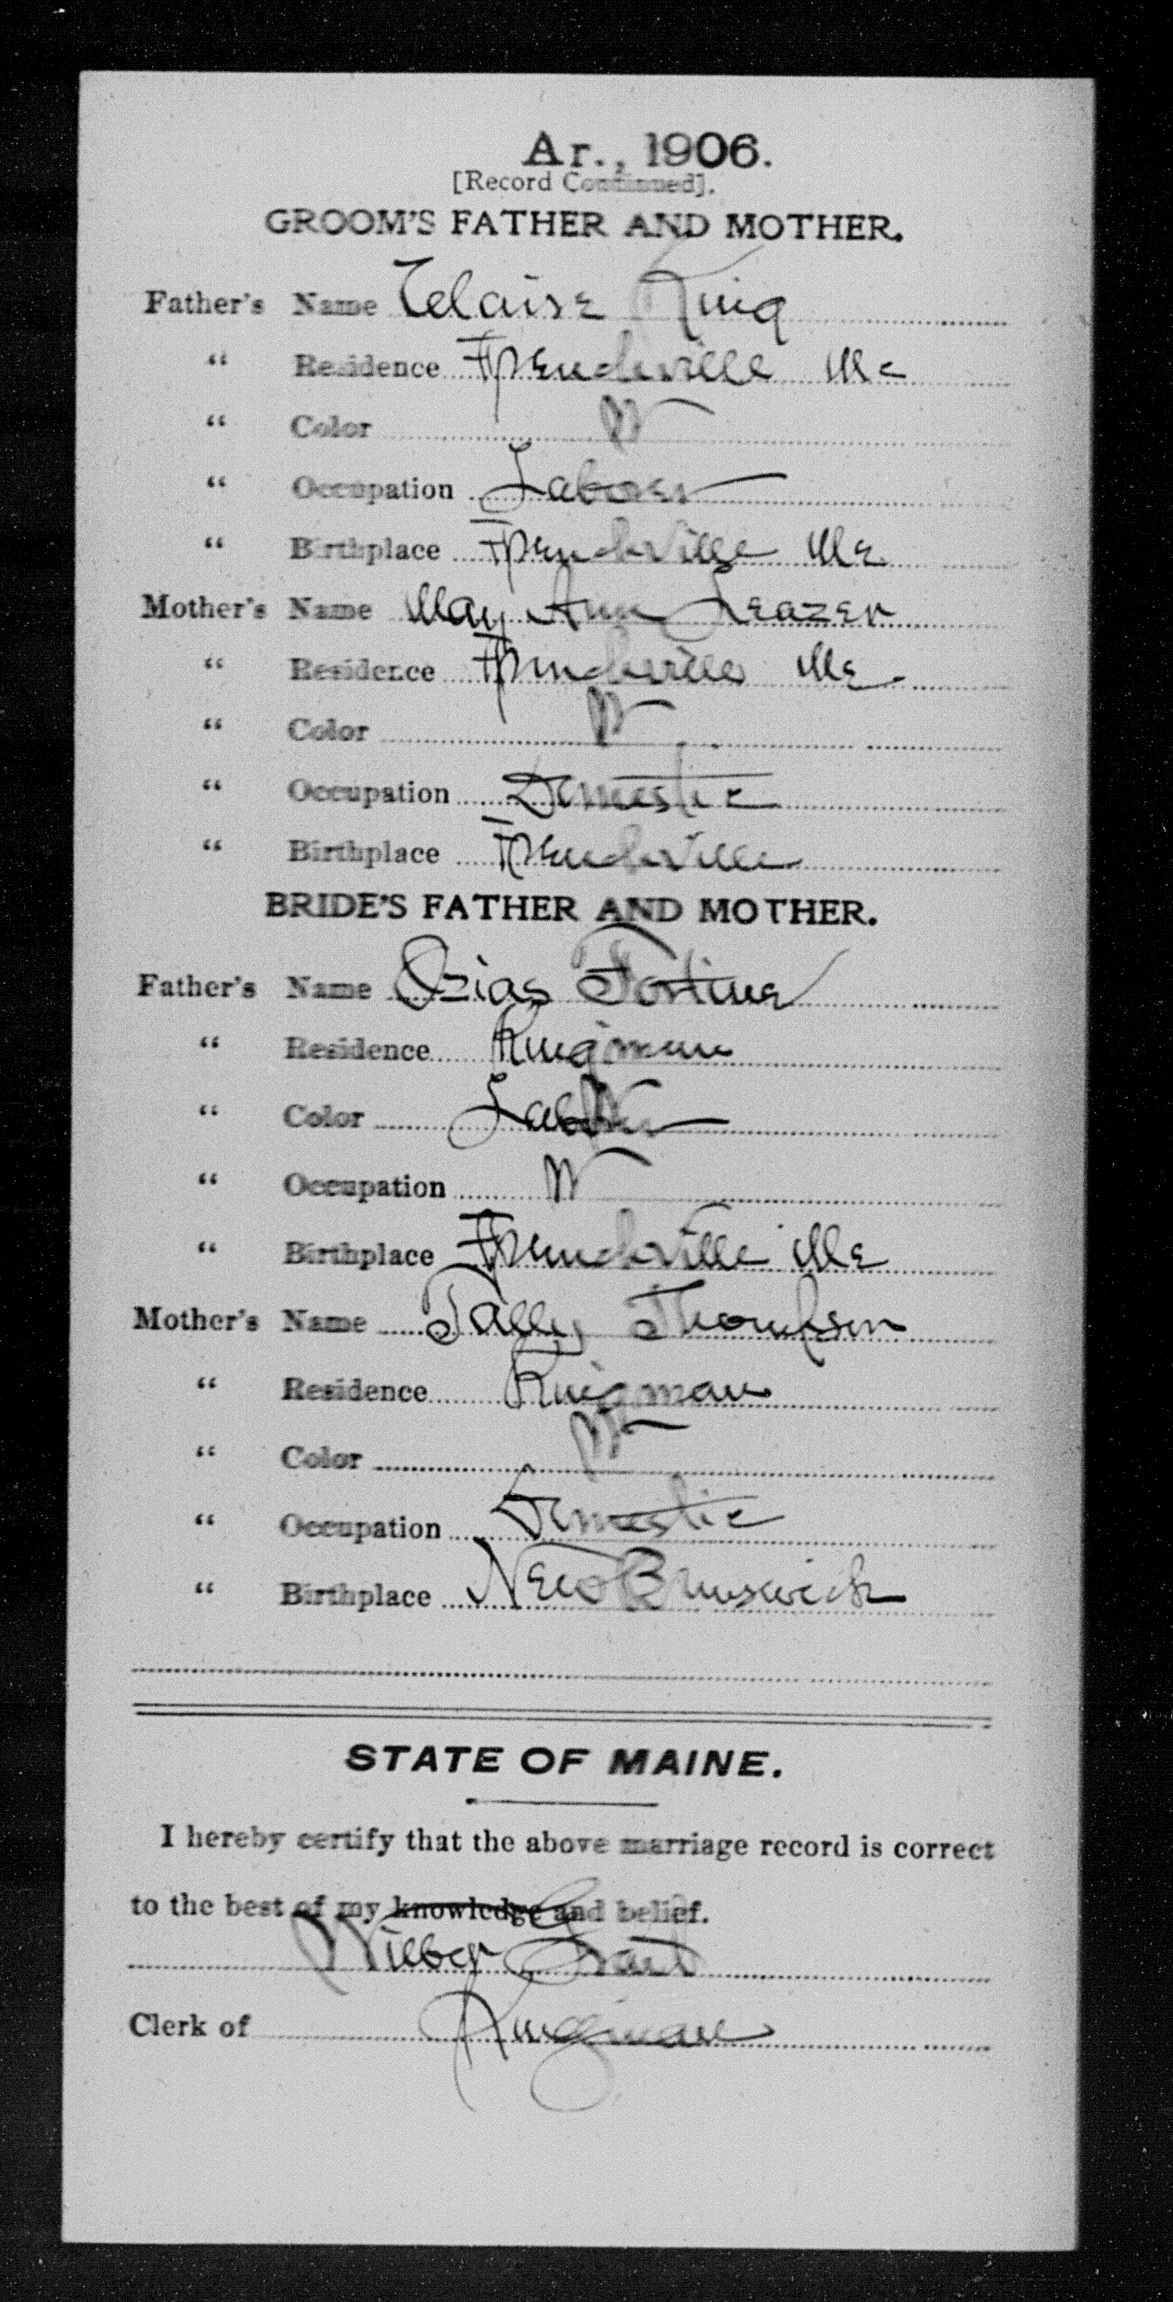 Ar., 1906.
[Record Continued].
GROOM'S FATHER AND MOTHER.
Father's Name Telaise King
" Residence Frenchville Me
" Color W
" Occupation Laborer
" Birthplace Frenchville Me
Mother's Name May Ann Leazer
" Residence Frenchville Me.
" Color W
" Occupation Domestic
" Birthplace Frenchville
BRIDE'S FATHER AND MOTHER.
Father's Name Ozias Fortine
" Residence Kingman
" Color Labor
" Occupation W
" Birthplace Frenchville Me
Mother's Name Tally Thompson
" Residence Kingman
" Color W
" Occupation Domestic
" Birthplace New Brunswick
STATE OF MAINE.
I hereby certify that the above marriage record is correct
to the best of my knowledge and belief.
Wilber Grant
Clerk of Kingman